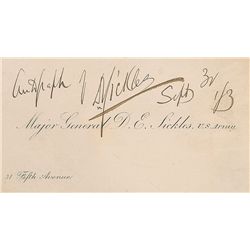 Autograph of DSickles
Sept 3d
1/3
Major General D. E. Sickles, U.S. Army.
Fifth Avenue